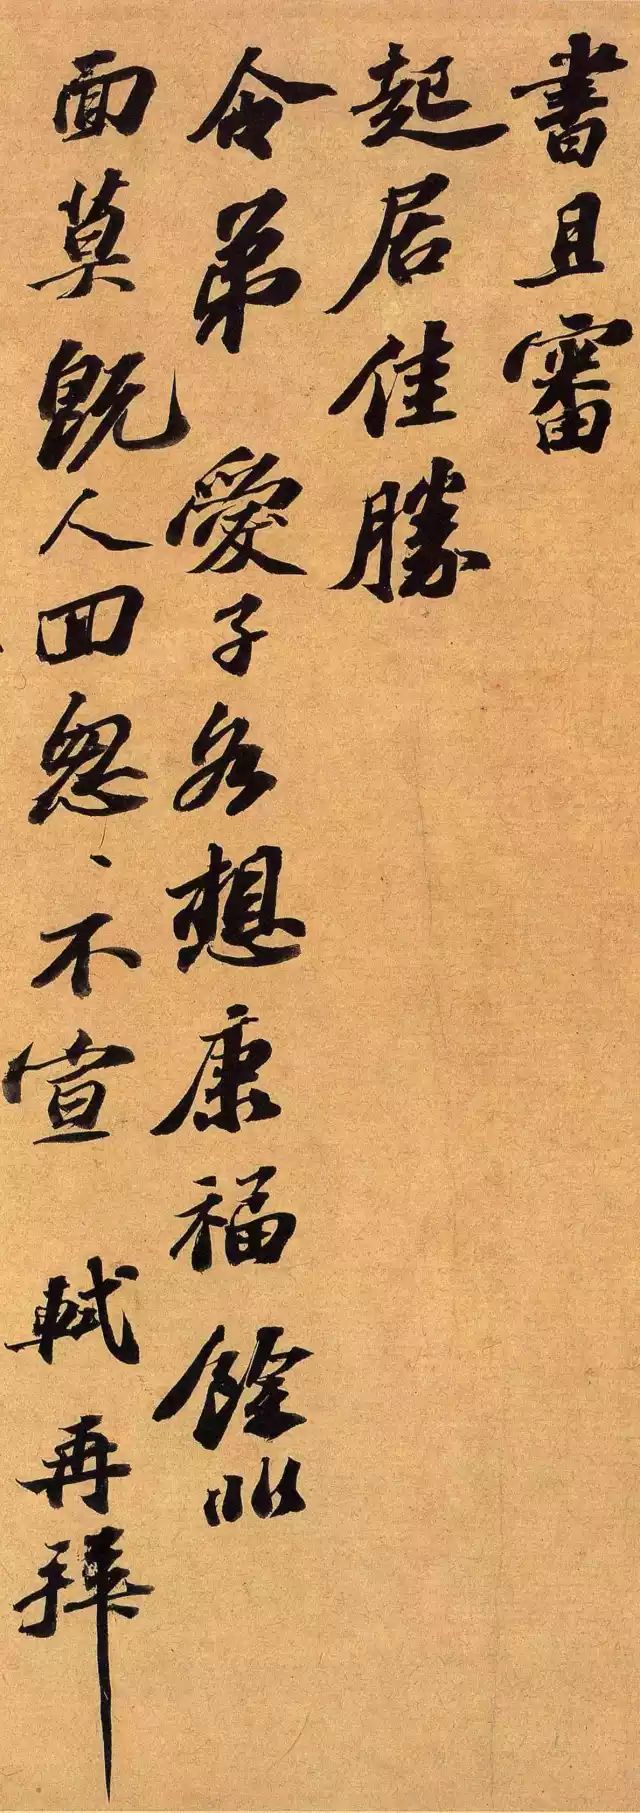 書且審
起居佳勝
令弟 愛子各想康福餘非
面莫既人回怱〻不宣 軾再拜